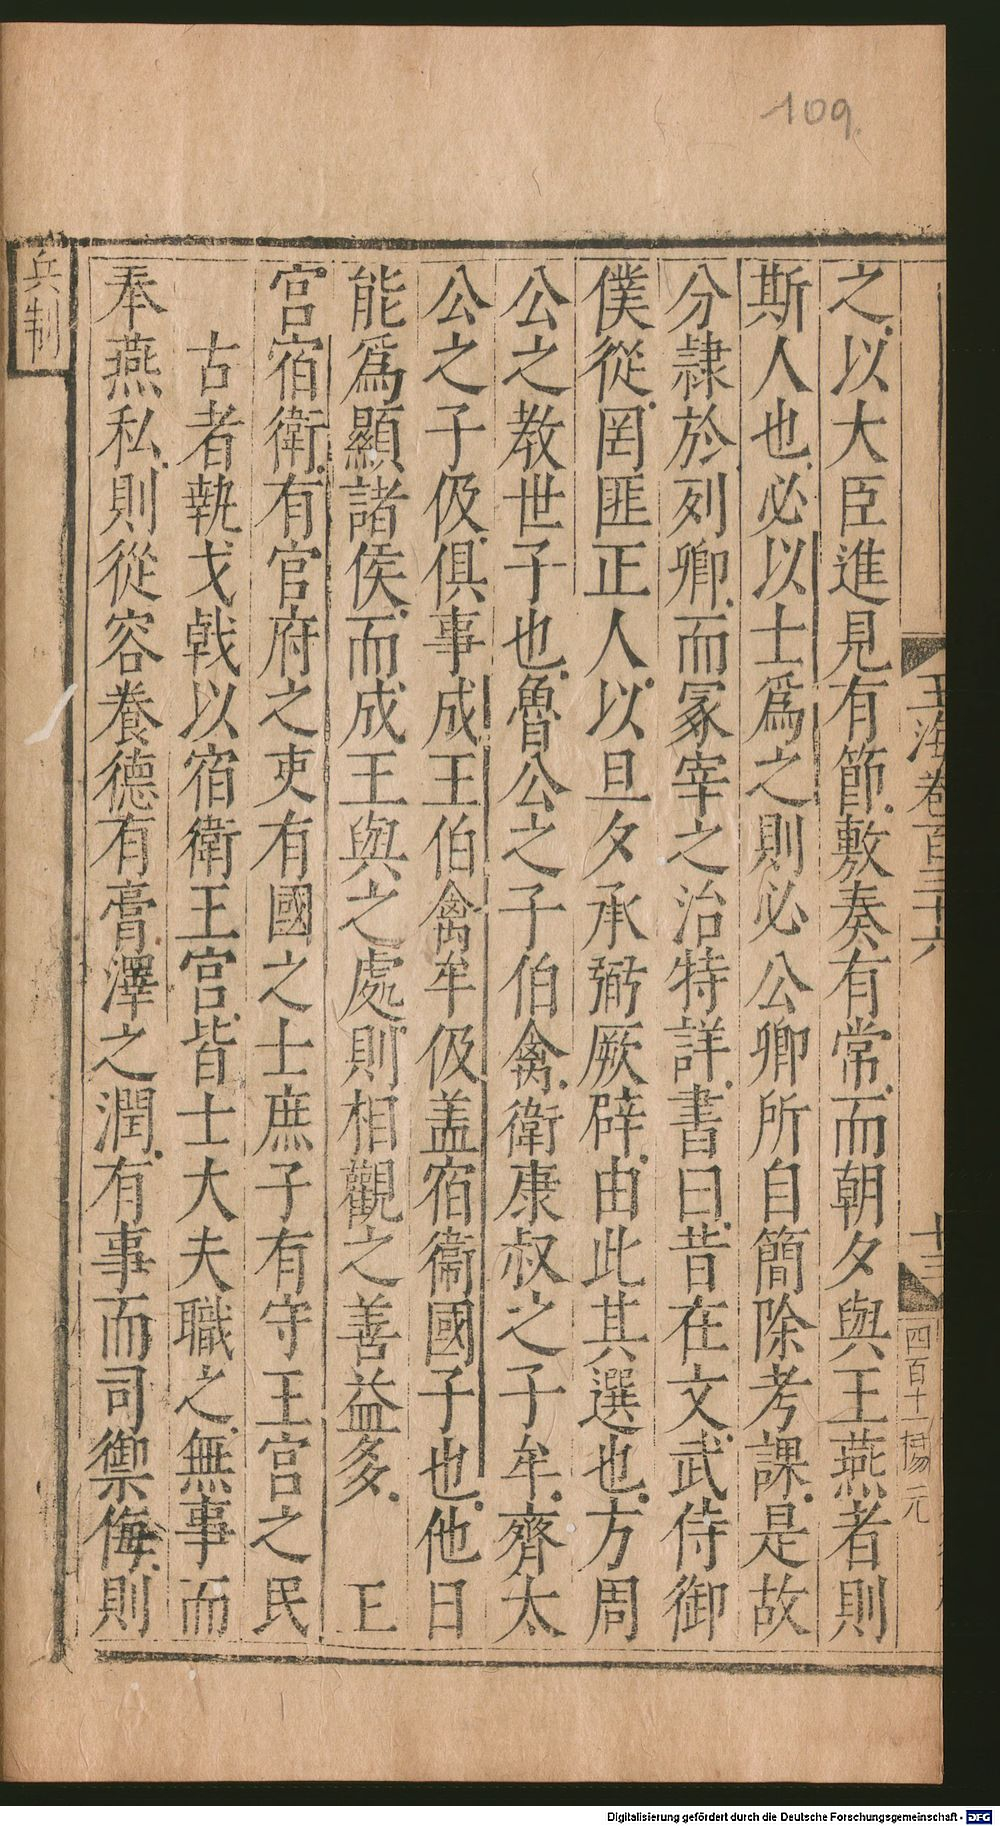 109.
玉海卷百三十六
十三
四百十一楊元
之以大臣進見有節敷奏有常而朝夕與王燕者則
斯人也必以士爲之則必公卿所自簡除考課是故
分隷於列卿而冢宰之治特詳書曰昔在文武侍御
僕從罔匪正人以旦夕承弼厥辟由此其選也方周
公之教世子也魯公之子伯禽衛康叔之子牟齊太
公之子伋俱事成王伯禽牟伋盖宿衞國子也他日
能爲顯諸侯而成王與之處則相觀之善益多　王
宮宿衛有官府之吏有國之士庶子有守王宮之民
古者執戈戟以宿衛王宮皆士大夫職之無事而
奉燕私則從容養德有膏澤之潤有事而司禦侮則
兵制
Digitalisierung gefördert durch die Deutsche Forschungsgemeinschaft - DFG